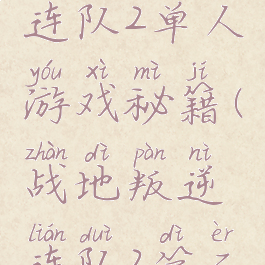 连队2单人
yóu xì mì jí
游戏秘籍(
zhàn dì pàn nì
战地叛逆
lián duì dì èr